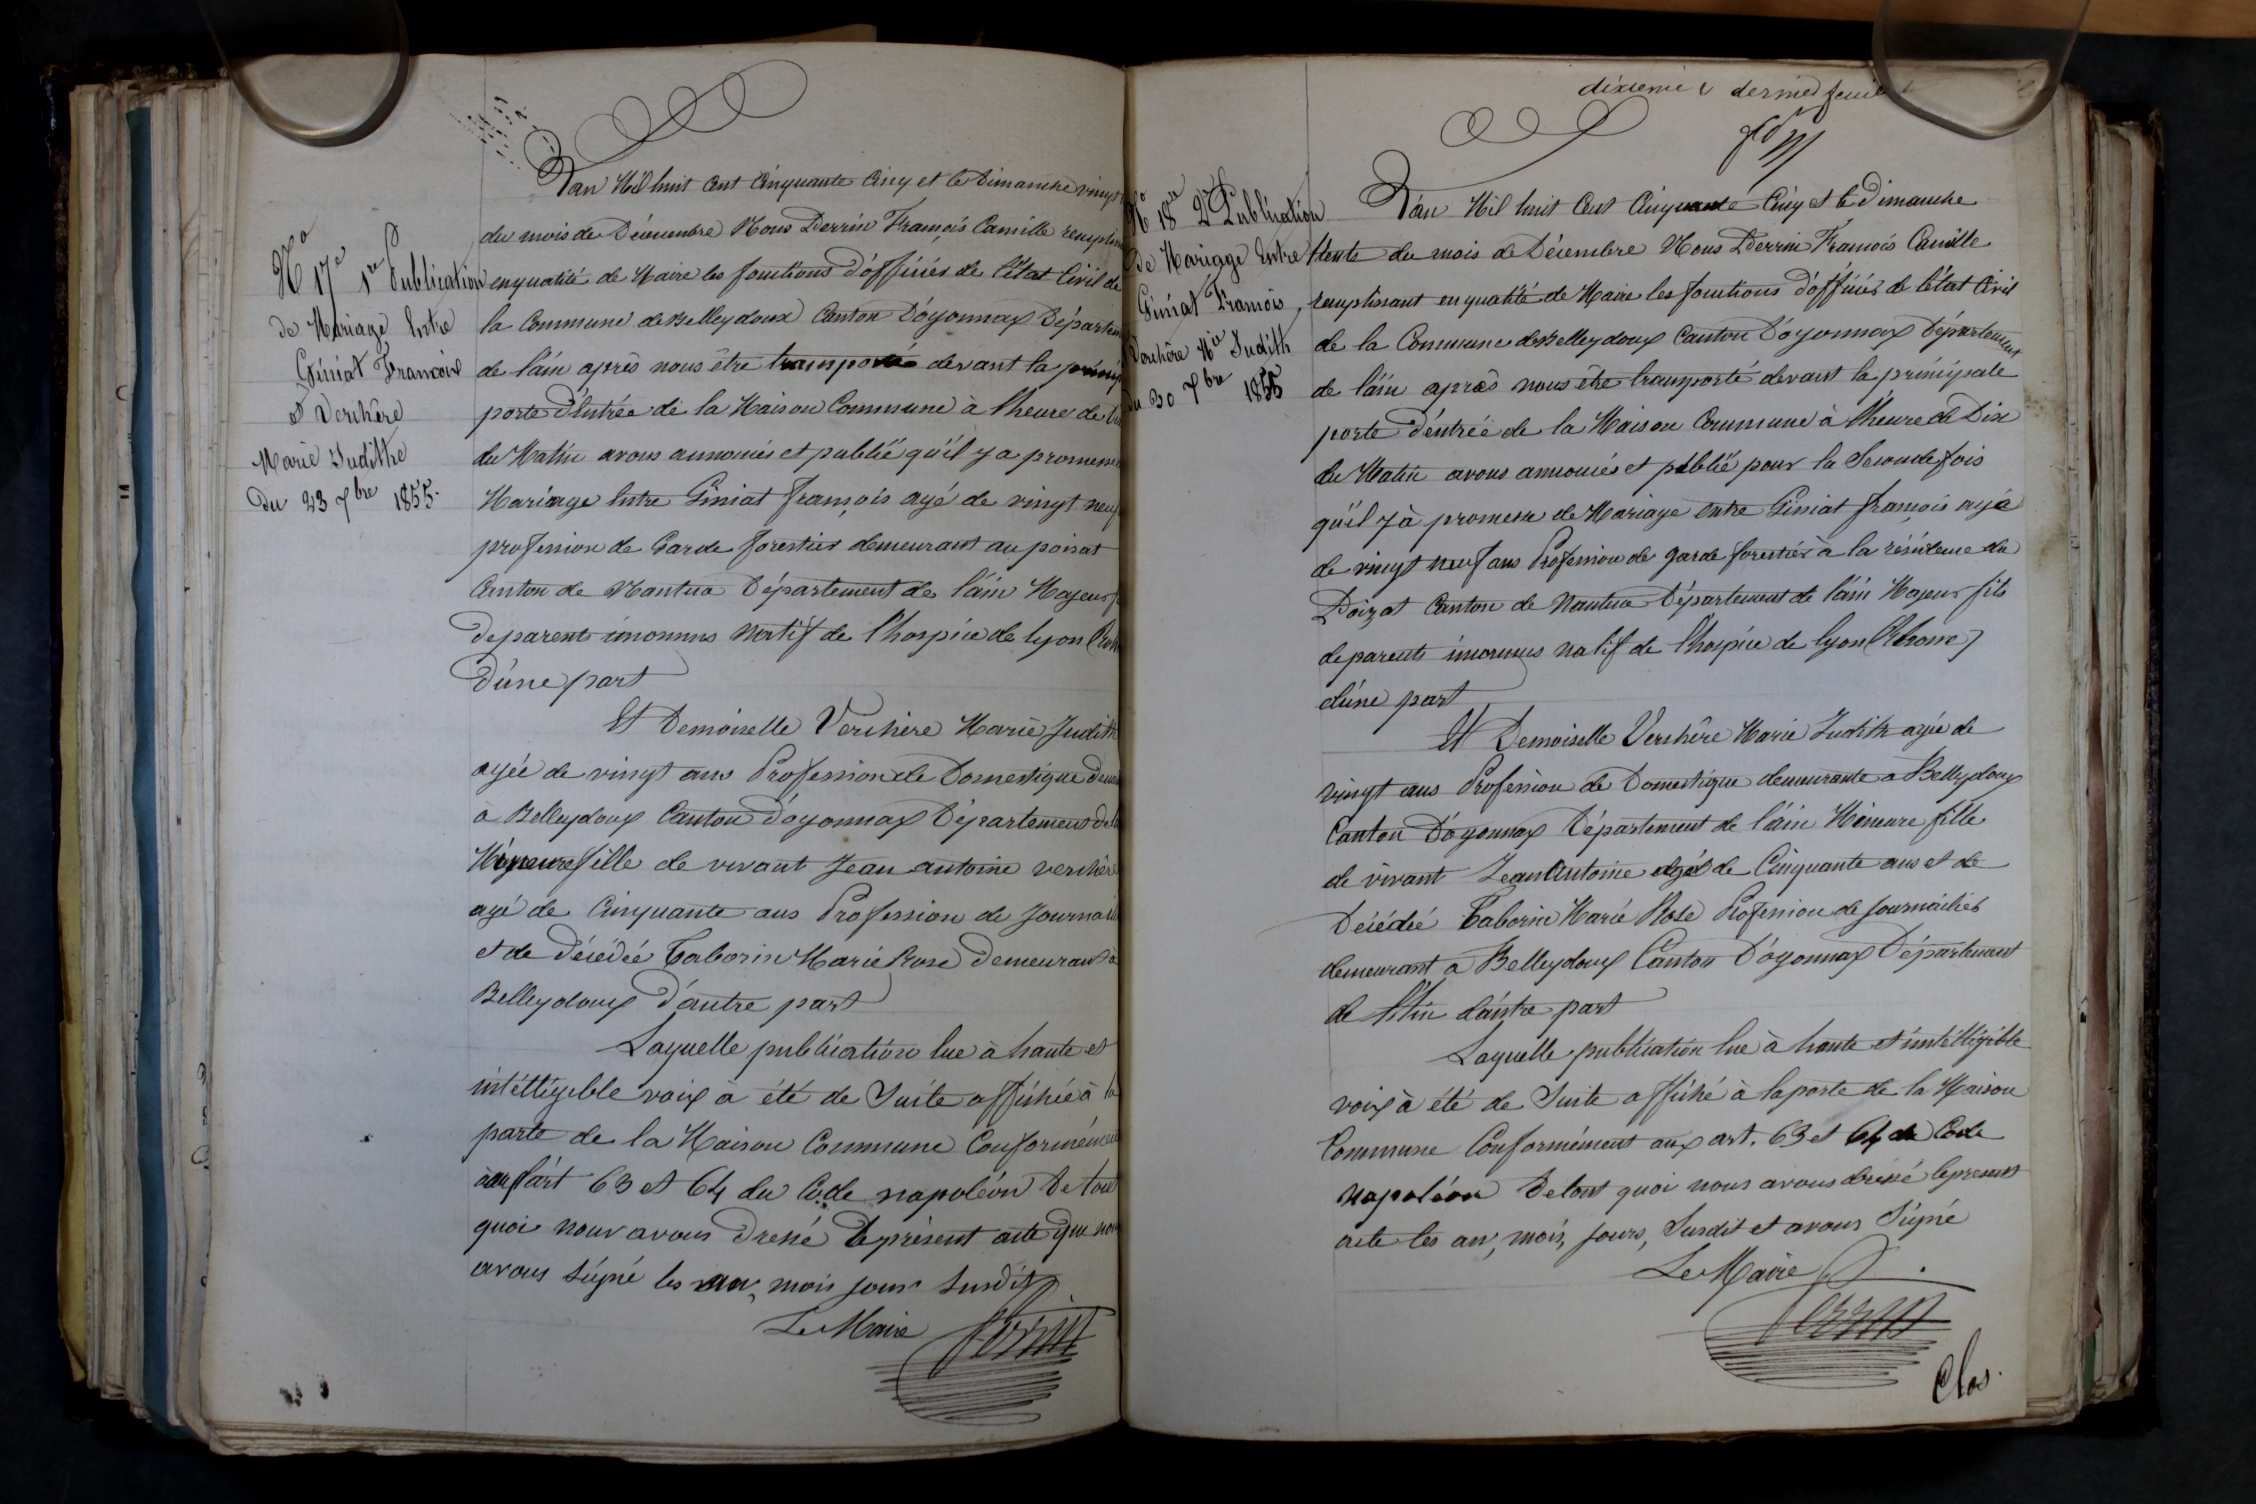 N° 17 1re Publication
de Mariage Entre
Géniat François
et Verchère
Marie Judithe
Du 23 Xbre 1855.
L'an Mil huit Cent Cinquante Cinq et le Dimanche vingt
du mois de Décembre Nous Perrin François Camille
en qualité de Maire les fonctions d'officier de l'état Civil de
la Commune de Belleydoux Canton d'oyonnax
de l'ain après nous être transporté devant la
porte d'Entrée de la Maison Commune à l'heure de
du Matin avons annoncés et publié qu'il y a
Mariage Entre Géniat françois agé de vingt neuf
profession de Garde forestier demeurant au poisat
Canton de Nantua Département de l'ain Majeur
de parents inconnus Natif de l'hospice de lyon
d'une part
Et Demoiselle Verchère Marie Judith
agée de vingt ans Profession de Domestique
à Belleydoux Canton d'oyonnax Département
Mineure fille de vivant Jean antoine verchère
agé de Cinquante ans Profession de
et de Décédée Taborin Marie Rose Demeurant à
Belleydoux d'autre part
Laquelle publication lue à haute et
intélligible voix à été de Suite affichée à la
porte de la Maison Commune
l'art 63 et 64 du Code napoléon De tout
quoi nous avons Dressé le présent acte que nous
avons Signé les an, mois jour Susdit
Le Maire Perrin
dixième et dernier feuillet
N° 18 2e Publication
de Mariage Entre
Géniat François
Verchère Mie Judith
du 30 Xbre 1855
L'an Mil huit Cent Cinquante Cinq et le Dimanche
trente du mois de Décembre Nous Perrin François Camille
remplissant en qualité de Maire les fonctions d'officier de l'état Civil
de la Commune de Belleydoux Canton D'oyonnax Département
de l'ain après nous être transporté devant la principale
porte d'entrée de la Maison Commune à l'heure de Dix
du Matin avons annoncés et publié pour la Seconde fois
qu'il y à promesse de Mariage entre Géniat françois agé
de vingt neuf ans Profession de garde forestier à la résidence du
Poizat Canton de Nantua Département de l'ain Majeur fils
de parents inconnus natif de l'hospice de lyon (Rhone)
d'une part
Et Demoiselle Verchère Marie Judith agée de
vingt ans Profession de Domestique demeurante a Belleydoux
Canton D'oyonnax Département de l'ain Mineure fille
de vivant Jean Antoine agé de Cinquante ans et de
Décédée Taborin Marie Rose Profession de Journalier
demeurant a Belleydoux Canton D'oyonnax Département
de l'Ain d'autre part
Laquelle publication lue à haute et intélligible
voix à été de Suite affiché à la porte de la Maison
Commune Conformément aux art. 63 et 64 du Code
Napoléon De tout quoi nous avons dressé le présent
acte les an, mois, jours, Susdit et avons Signé
Le Maire
Perrin
Clos.